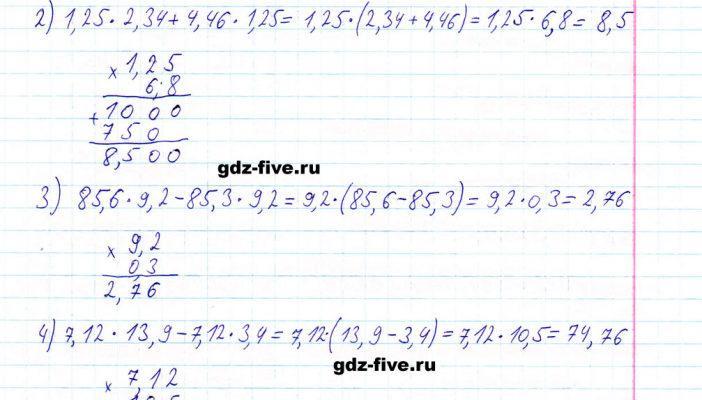 2) 1,25 · 2,34 + 4,46 · 1,25 = 1,25 · (2,34 + 4,46) = 1,25 · 6,8 = 8,5
× 1,25
6,8
+ 1000
750
8,500
gdz-five.ru
3) 85,6 · 9,2 - 85,3 · 9,2 = 9,2 · (85,6 - 85,3) = 9,2 · 0,3 = 2,76
× 9,2
0,3
2,76
4) 7,12 · 13,9 - 7,12 · 3,4 = 7,12 · (13,9 - 3,4) = 7,12 · 10,5 = 74,76
gdz-five.ru
× 7,12